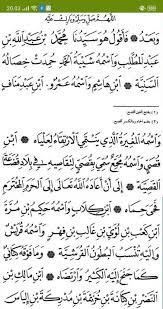 20.03
اللهم صل وسلم وبارك عليه
وبعد فأقول هو سيدنا محمد بن عبد الله بن
عبد المطلب واسمه شيبة الحمد حمدت خصاله
السنية ابن هاشم واسمه عمرو ابن عبد مناف
واسمه المغيرة الذي ينتمي الارتقاء لعلياه ابن
قصي واسمه مجمع سمي بقصي لتقاصيه في بلاد قضاعة
القصية إلى أن أعاده الله تعالى إلى الحرم المحترم
فحمى حماه ابن كلاب واسمه حكيم بن مرة بن
كعب بن لؤي بن غالب بن فهر واسمه قريش
وإليه تنسب البطون القرشية وما فوقه كناني
كما جنح إليه الكثير وارتضاه ابن مالك بن
النضر بن كنانة بن خزيمة بن مدركة بن إلياس